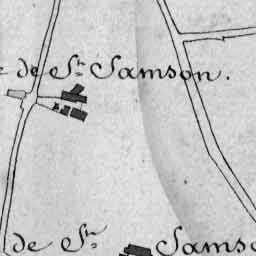 de St. Samson.
de St. Samso